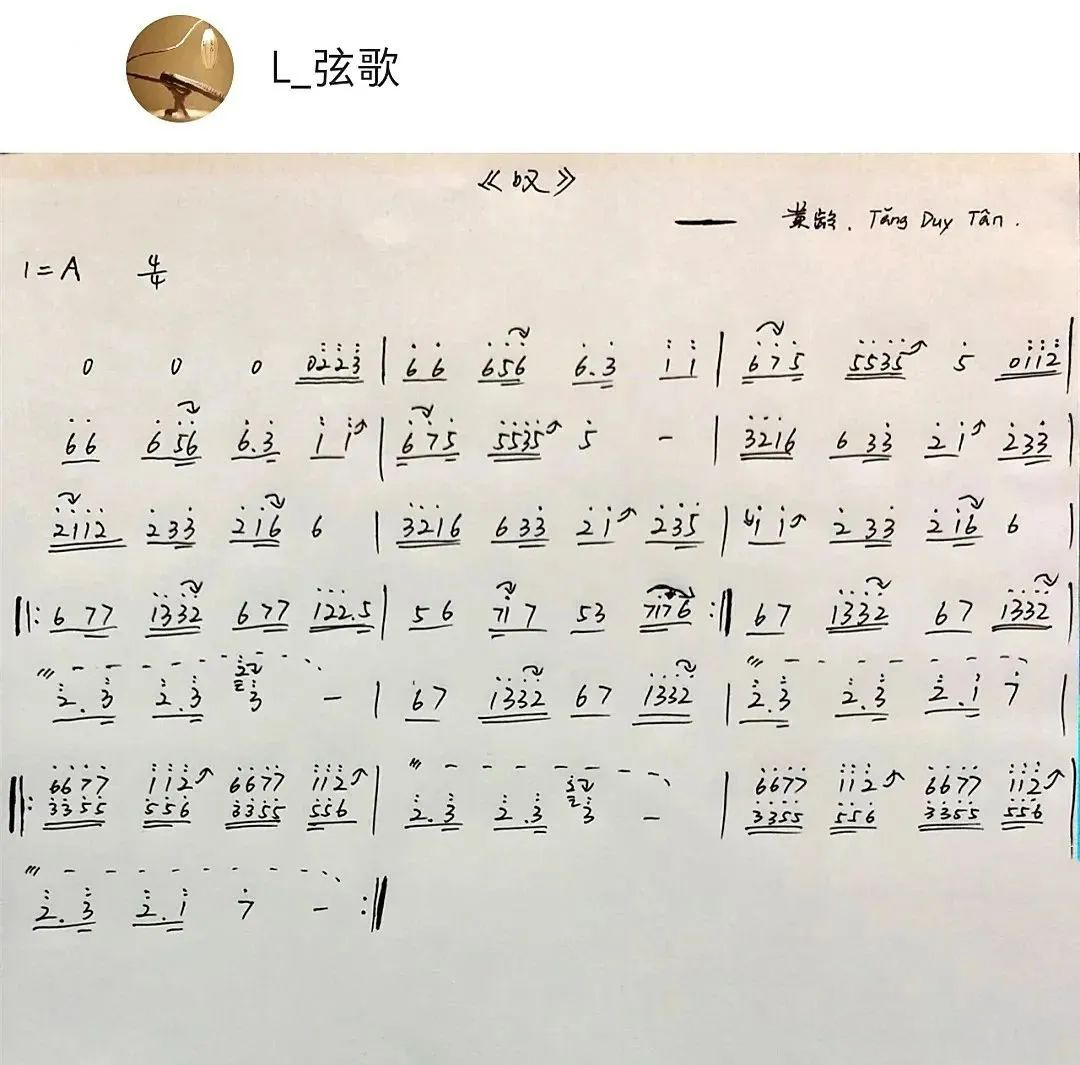 L_弦歌
《叹》
—— 黄龄. Tăng Duy Tân.
1=A 4/4
0 0 0 0223 | 66 656 6.3 11 | 675 5535 5 0112 |
66 656 6.3 11 | 675 5535 5 - | 3216 633 21 233 |
2112 233 216 6 | 3216 633 21 235 | 11 233 216 6 |
‖: 677 1332 677 122.5 | 56 717 53 7176 :‖ 67 1332 67 1332
2.3 2.3 3 - | 67 1332 67 1332 | 2.3 2.3 2.1 7 |
‖: 6677 112 6677 112 | 2.3 2.3 3 - | 6677 112 6677 112
3355 556 3355 556 | 3355 556 3355 556
2.3 2.1 7 - :‖